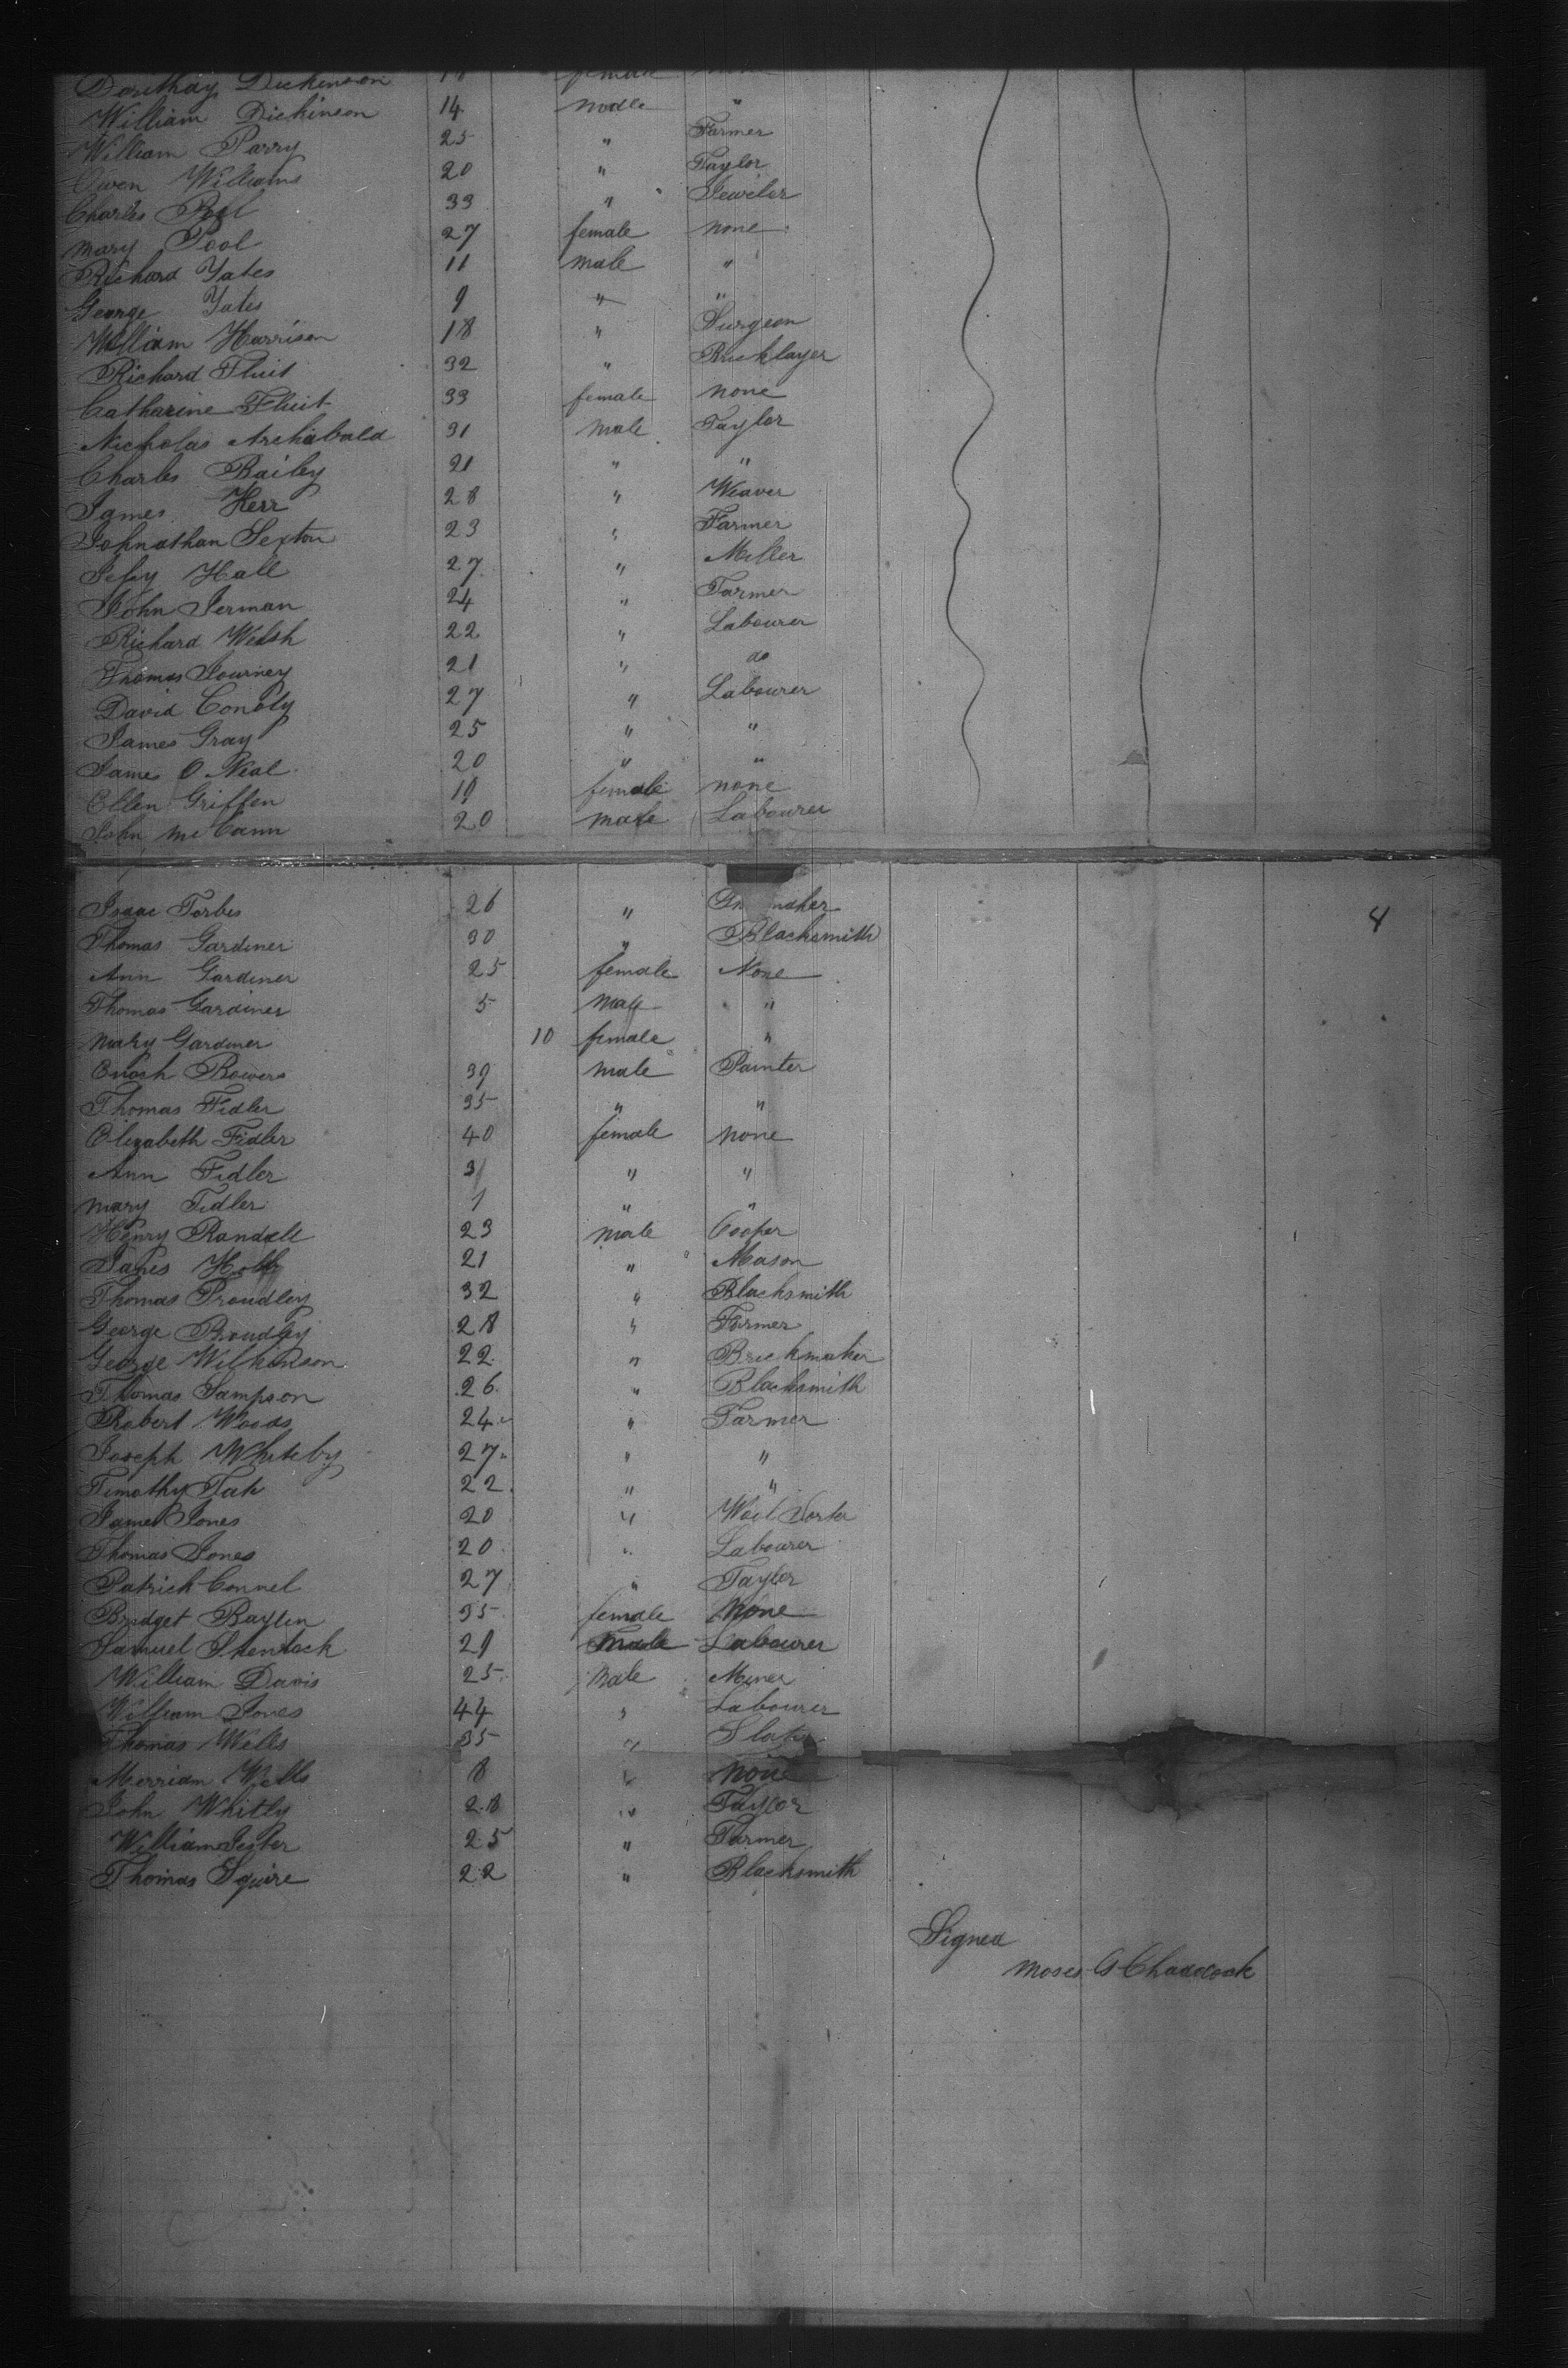 Dorithay Dickinson female
William Dickinson 14 male "
William Parry 25 " Farmer
Owen Williams 20 " Taylor
Charles Pool 33 " Jeweler
Mary Pool 27 female none
Richard Yates 11 male "
George Yates 9 " "
William Harrison 18 " Surgeon
Richard Fluit 32 " Bricklayer
Catharine Fluit 33 female none
Nicholas Archabald 31 male Taylor
Charles Bailey 21 " "
James Kerr 28 " Weaver
Johnathan Sexton 23 " Farmer
Hall 27 " Miller
John Jerman 24 " Farmer
Richard Welsh 22 " Labourer
Thomas Journey 21 " do
David Conoly 27 " Labourer
James Gray 25 " "
James O Neal 20 " "
Ellen Griffen 19 female none
John McCann 20 male Labourer
Isaac Forbes 26 "
Thomas Gardiner 30 " Blacksmith
Ann Gardiner 25 female None
Thomas Gardiner 5 male "
Mary Gardiner 10 female "
Enoch Bowers 39 male Painter
Thomas Fidler 35 " "
Elizabeth Fidler 40 female none
Ann Fidler 3 " "
Mary Fidler 1 " "
Henry Randell 23 male Cooper
21 " Mason
Thomas Proudley 32 " Blacksmith
George Proudley 28 " Farmer
George Wilkinson 22 " Brickmaker
Thomas Sampson 26 " Blacksmith
Robert Woods 24 " Farmer
Joseph Whiteby 27 " "
Timothy 22 " "
James Jones 20 " Wool Sorter
Thomas Jones 20 " Labourer
Patrick Connel 27 " Taylor
Bridget Baylin 35 female None
Samuel 29 male Labourer
William Davis 25 Male Miner
William Jones 44 " Labourer
Thomas Wells 35 " Slater
Merriam Wells 8 " None
John Whitly 28 " Taylor
William Jester 25 " Farmer
Thomas Squire 22 " Blacksmith
4
Signed
Moses G Chaddock